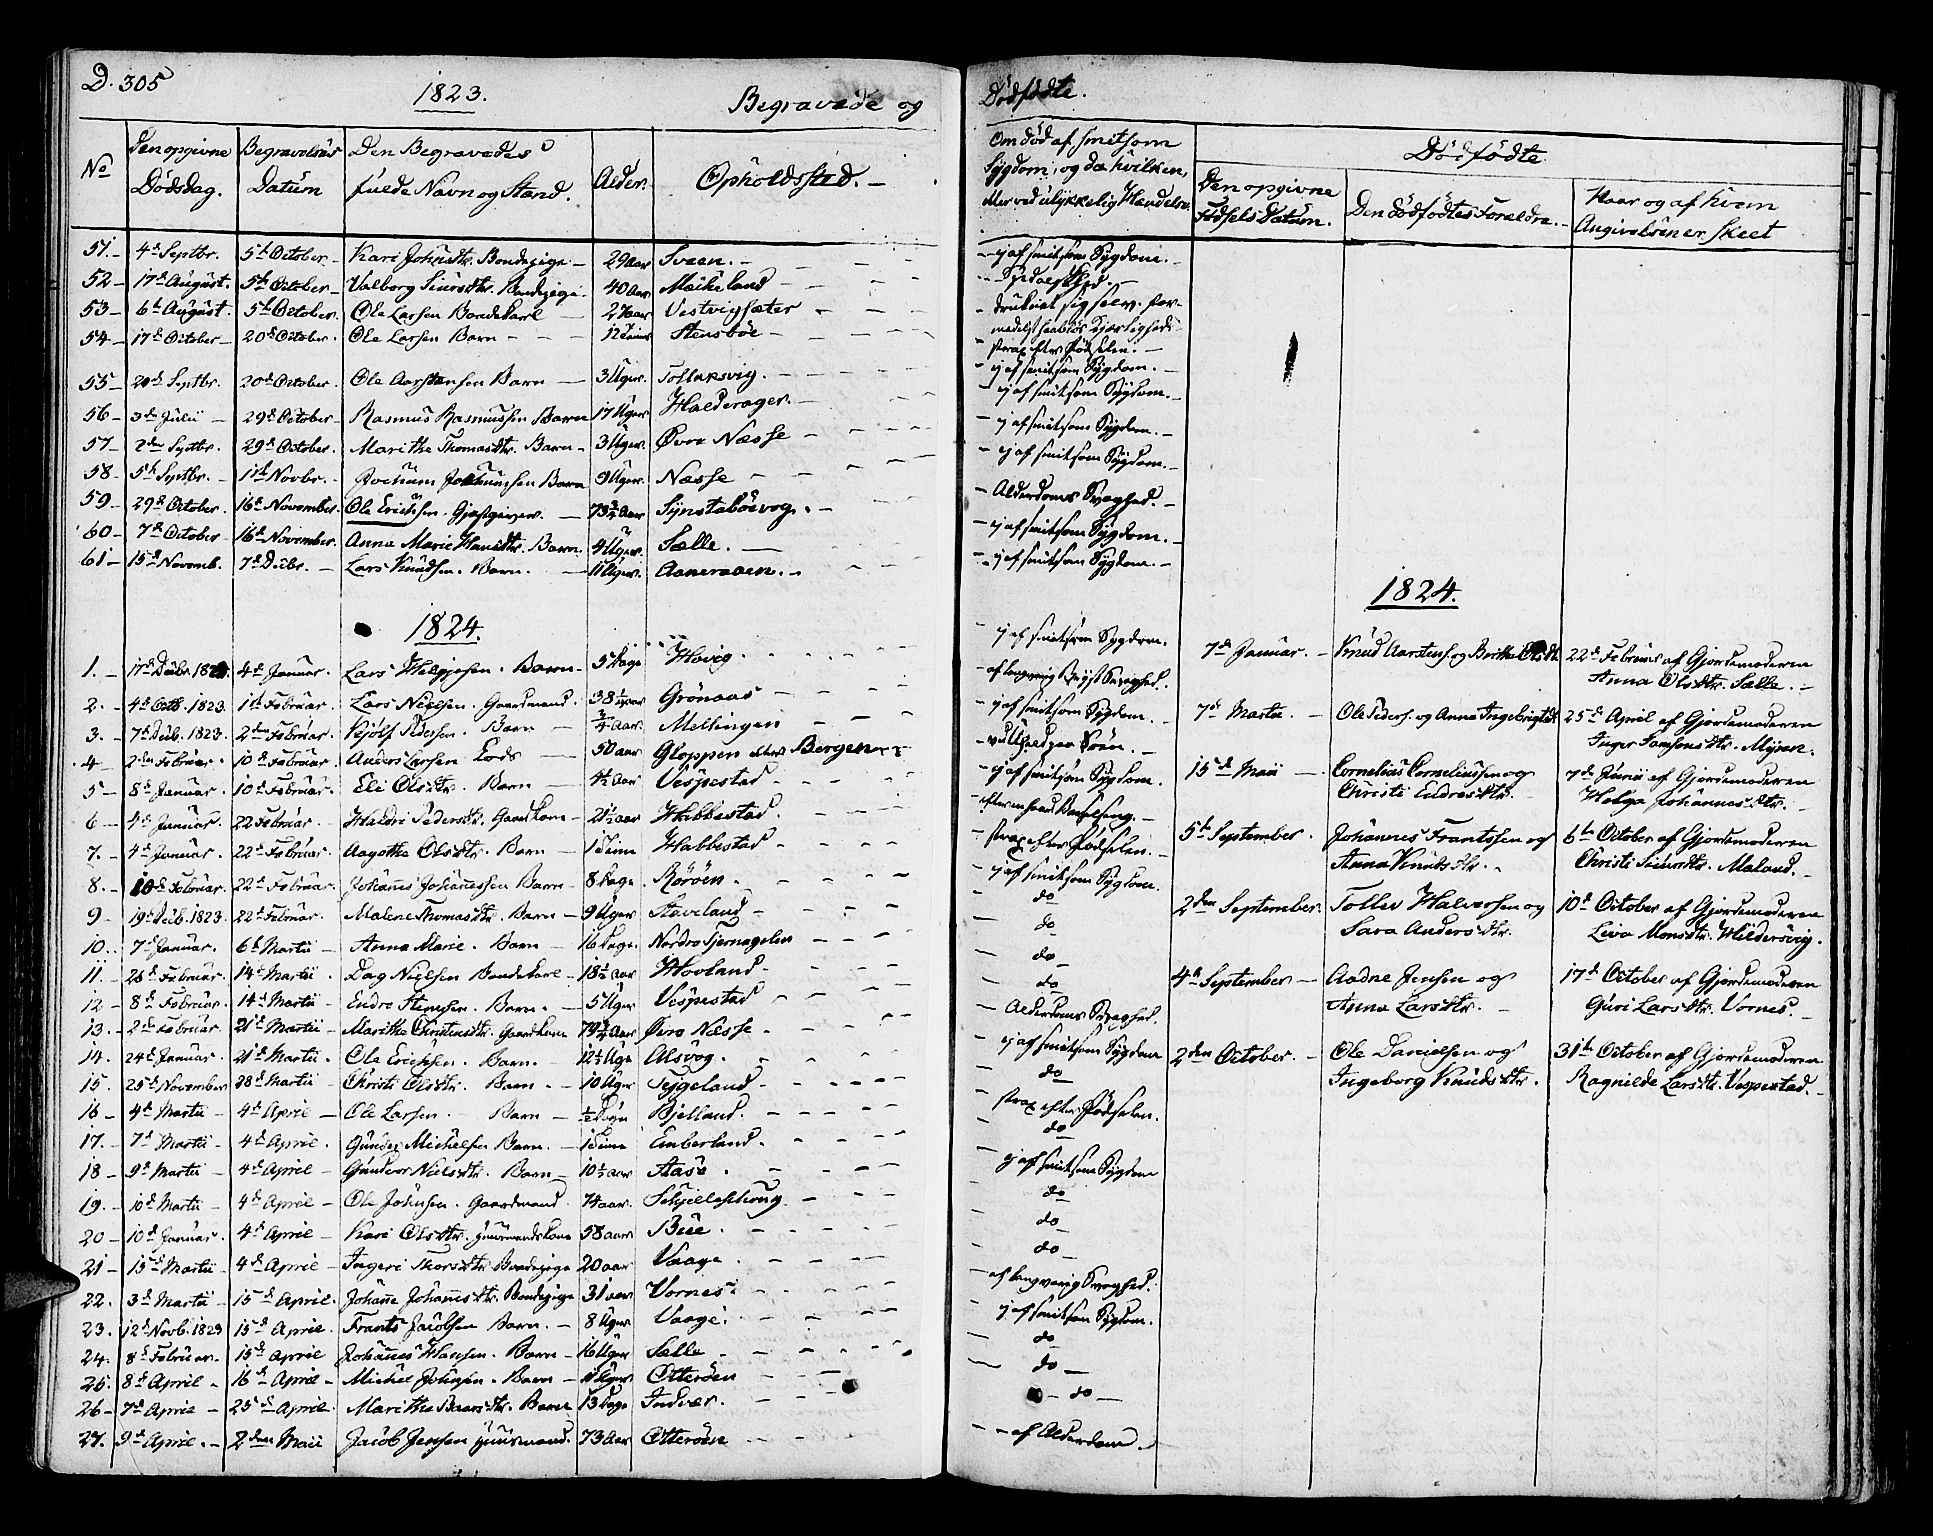 D. 305
1823.
Begravede og
Dödfödte.
No
Den opgivne Dödsdag.
Begravelses Datum
Den Begravedes fulde Navn og Stand.
Alder.
Opholdssted.
Om död af smitsom Sygdom, og da hvilken, eller ved ulykkelig Hændelse.
Dödfödte.
Den opgivne Födsels Datum.
Den dödfödtes Forældre.
Naar og af hvem Angivelsen er skeet
51. 4de Septbr. 5te October Kari Johnsdtr. Bondepige 29 aar Sveen. ej af smitsom Sygdom.
52 17de August. 5te October Valborg Siursdtr. Bondepige 40 Aar Mækeland Spedalskhed.
53 6te August. 5te October. Ole Larsen Bondekarl 27 aar Vestvigsæter druknet sig selv for-
medelst haablös Kjærligheds
54 17de October 20de October. Ole Larsen Barn 12 Timer Stensböe strax efter Födselen.
55 20de Septbr. 20de October. Ole Aarstensen Barn 3 Uger. Tollaksvig. ej af smitsom Sygdom.
56 3de Julii 29de October. Rasmus Rasmussen Barn 17 Uger Halderager. ej af smitsom Sygdom.
57 2den Septbr. 29de October. Marithe Thomasdtr. Barn 3 Uger. Övre Næsse ej af smitsom Sygdom.
58 5te Septbr. 1te Novbr. Jochum Jochumsen Barn 9 Uger. Næsse ej af smitsom Sygdom.
59 29de October. 16de November. Ole Erichsen. Gjæstgiver. 73 3/4 aar Synstaböevog. Alderdoms Svaghed.
60 7de October 16de November. Anna Marie Hansdtr. Barn. 4 Uger. Sælle. ej af smitsom Sygdom.
61 15de Novemb. 7de Decbr. Lars Knudsen. Barn. 11 Uger. Aaneraaen. ej af smitsom Sygdom.
1824.
1824.
1. 17de Decbr. 1823. 4de Januar. Lars Barn 5 Dage Hovig. ej af smitsom Sygdom.
2. 4de Octb. 1823. 1te Februar. Lars Nielsen. Gaardmand. 38 1/2 aar Grönaas af langvarig Bryst Svaghed.
3. 7de Decb. 1823. 2den Februar. Pedersen. Barn 3/4 Aar. Mellingen ej af smitsom Sygdom.
4 2den Februar. 10de Februar. Anders Larsen Lods 50 aar Gloppen eller Bergen
5 8de Januar. 10de Februar. Eli Olsdtr. Barn 4 1/2 aar Vespestad ej af smitsom Sygdom.
6 4de Januar. 22 Februar. Haldri Pedersdtr. Gaardkone 21 1/2 aar Habbestad. efter en haard Barselseng.
7. 4de Januar. 22de Februar. Aagotha Olsdtr. Barn 1 Time Habbestad strax efter Födselen.
8. 10de Februar. 22de Februar. Johanes Johanessen Barn 8 Dage Röröen. ej af smitsom Sygdom.
9 19de Decb. 1823. 22de Februar. Malene Thomasdtr. Barn 9 Uger Staveland do
10. 7de Januar. 6te Martii Anna Marie. Barn 16 Dage. Nordre Tjernagelen do
11. 26de Februar. 14de Martii Dag Nielsen Bondekarl 18 1/2 aar Hovland do
12 8de Februar. 14de Martii Endre Barn. 5 Uger Vespestad do
13. 2de Februar. 21de Martii Marithe Christensdtr. Gaardkone 79 3/4 Aar Övre Næsse. Alderdoms Svaghed.
14. 24de Januar. 21de Martii Ole Erichsen. Barn. 12 1/2 Uge Alsvog. ej af smitsom Sygdom
15. 25de November 28de Martii Christi Olsdtr. Barn. 10 Uger Tyggeland. do
16 4de Martii 4de April Ole Larsen. Barn 1/2 Dögn Bjelland. strax efter Födselen.
17. 7de Martii 4de April. Gunder Michelsen Barn. 1 Time Emberland. do
18 9de Martii 4de April Gundvor Nielsdtr. Barn 10 1/2 aar Aase. ej af smitsom Sygdom
19. 10de Martii 4de April Ole Johnsen. Gaardmand. 74 aar. do
20 10de Januar. 4de April Kari Olsdtr. Huusmandskone 58 aar Bue. do
21 15de Martii 4de April Ingeri Thorsdtr. Bondepige 20 aar Vaage. do
22. 3de Martii 15de April. Johane Johanesdtr. Bondepige 31 aar Vornes. af langvarig Svaghed.
23. 12de Novb. 1823 15de April. Frants Jacobsen Barn. 8 Uger Vaage. ej af smitsom Sygdom.
24. 8de Februar. 15de April Johanes Hansen. Barn 16 Uger Sælle do
25. 8de April 16de April Michel Johnsen. Barn 11 Uger Otteröen do
26 7de April 25de April. Marithe Baarsdtr. Barn 13 Dage Indvær. do
27. 9de April. 2den Maii Jacob Jensen Huusmand. 73 Aar Otteröen af Alderdom.
7de Januar. Knud Aarstens. og Berthe Olsdtr. 22de Februar af Gjordemoderen
Anna Olsdtr. Sælle.
7de Martii. Ole Peders. og Anna Ingebrigtsdtr 25de April af Gjordemoderen
Inger Samsonsdtr. Mysen.
15de Maii Cornelius Corneliussen og 7de Junii af Gjordemoderen
Christi Endresdtr. Helga Johannesdtr.
5te September. Johannes Frantssen og 6te October af Gjordemoderen
Anna Knudsdtr. Christi Siursdtr. Maland.
2den September. Tollev Halversen og 10de October af Gjordemoderen
Sara Andersdtr. Liva Monsdtr. Hildersvig.
4de September Aadne Jensen og 17de October af Gjordemoderen
Anna Larsdtr. Guri Larsdtr. Vornes.
2den October. Ole Danielsen og 31te October af Gjordemoderen
Ingeborg Knudsdtr. Ragnilde Larsdtr. Vespestad.